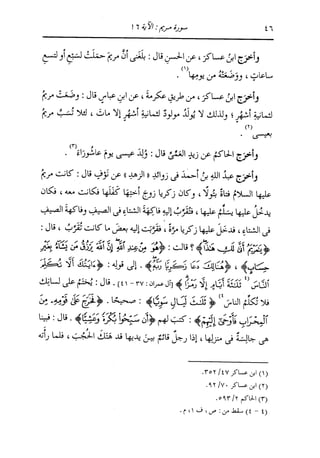 ٤٦
سورة مريم : الآية ١٦
وأخرَج ابنُ عساكرَ ، عن الحسنِ قال : بلغنى أن مريمَ حمَلَتْ لسَبْعٍ أو لتسعِ
ساعاتٍ ، ووضَعَتْه من يومِها(١) .
وأخرَج ابنُ عساكرَ ، من طريقِ عكرمةَ ، عن ابنِ عباسٍ قال : وضَعَتْ مريمُ
لثمانيةِ أشهرٍ ؛ ولذلك لا يُولَدُ مولودٌ لثمانيةِ أشهرٍ إلا مات ، لئلا تُسَبَّ مريمُ
بعيسى(٢) .
وأخرَج الحاكمُ عن زيدٍ العَمِّىِّ قال : وُلِد عيسى يومَ عاشُوراءَ(٣) .
وأخرَج عبدُ اللهِ بنُ أحمدَ فى زوائدِ «الزهدِ» عن نَوْفٍ قال : كانت مريمُ
عليها السلامُ فتاةً بَتُولًا ، وكان زكريا زوجَ أختِها كَفَلَها فكانت معه ، فكان
يدخُلُ عليها يسلِّمُ عليها ، فتُقرِّبُ إليه فاكهةَ الشتاءِ فى الصيفِ وفاكهةَ الصيفِ
فى الشتاءِ ، فدخَل عليها زكريا مرَّةً ، فقرَّبَت إليه بعضَ ما كانت تُقرِّبُ ، قال :
﴿يَٰمَرْيَمُ أَنَّىٰ لَكِ هَٰذَا﴾ ؟ قالت : ﴿هُوَ مِنْ عِندِ ٱللَّهِ إِنَّ ٱللَّهَ يَرْزُقُ مَن يَشَآءُ بِغَيْرِ
حِسَابٍ﴾ ، ﴿هُنَالِكَ دَعَا زَكَرِيَّا رَبَّهُۥ﴾ . إلى قولِه : ﴿ءَايَتُكَ أَلَّا تُكَلِّمَ
ٱلنَّاسَ(٤) ثَلَٰثَةَ أَيَّامٍ إِلَّا رَمْزًا﴾ [آل عمران : ٣٧ - ٤١] . قال : يُختَمُ على لسانِك
فلا تُكلِّمُ الناسَ(٤) ﴿ثَلَٰثَ لَيَالٍ سَوِيًّا﴾ : صحيحًا . ﴿فَخَرَجَ عَلَىٰ قَوْمِهِۦ مِنَ
ٱلْمِحْرَابِ فَأَوْحَىٰٓ إِلَيْهِمْ﴾ : كتَب لهم ﴿أَن سَبِّحُوا۟ بُكْرَةً وَعَشِيًّا﴾ . قال : فبينا
هى جالسةٌ فى منزلِها ، إذا رجلٌ قائمٌ بينَ يديها قد هتَك الحُجُبَ ، فلما رأته
(١) ابن عساكر ٤٧/ ٣٥٢.
(٢) ابن عساكر ٧٠/ ٩٢.
(٣) الحاكم ٢/ ٥٩٣.
(٤ - ٤) سقط من : ص ، ف ١ ، م .